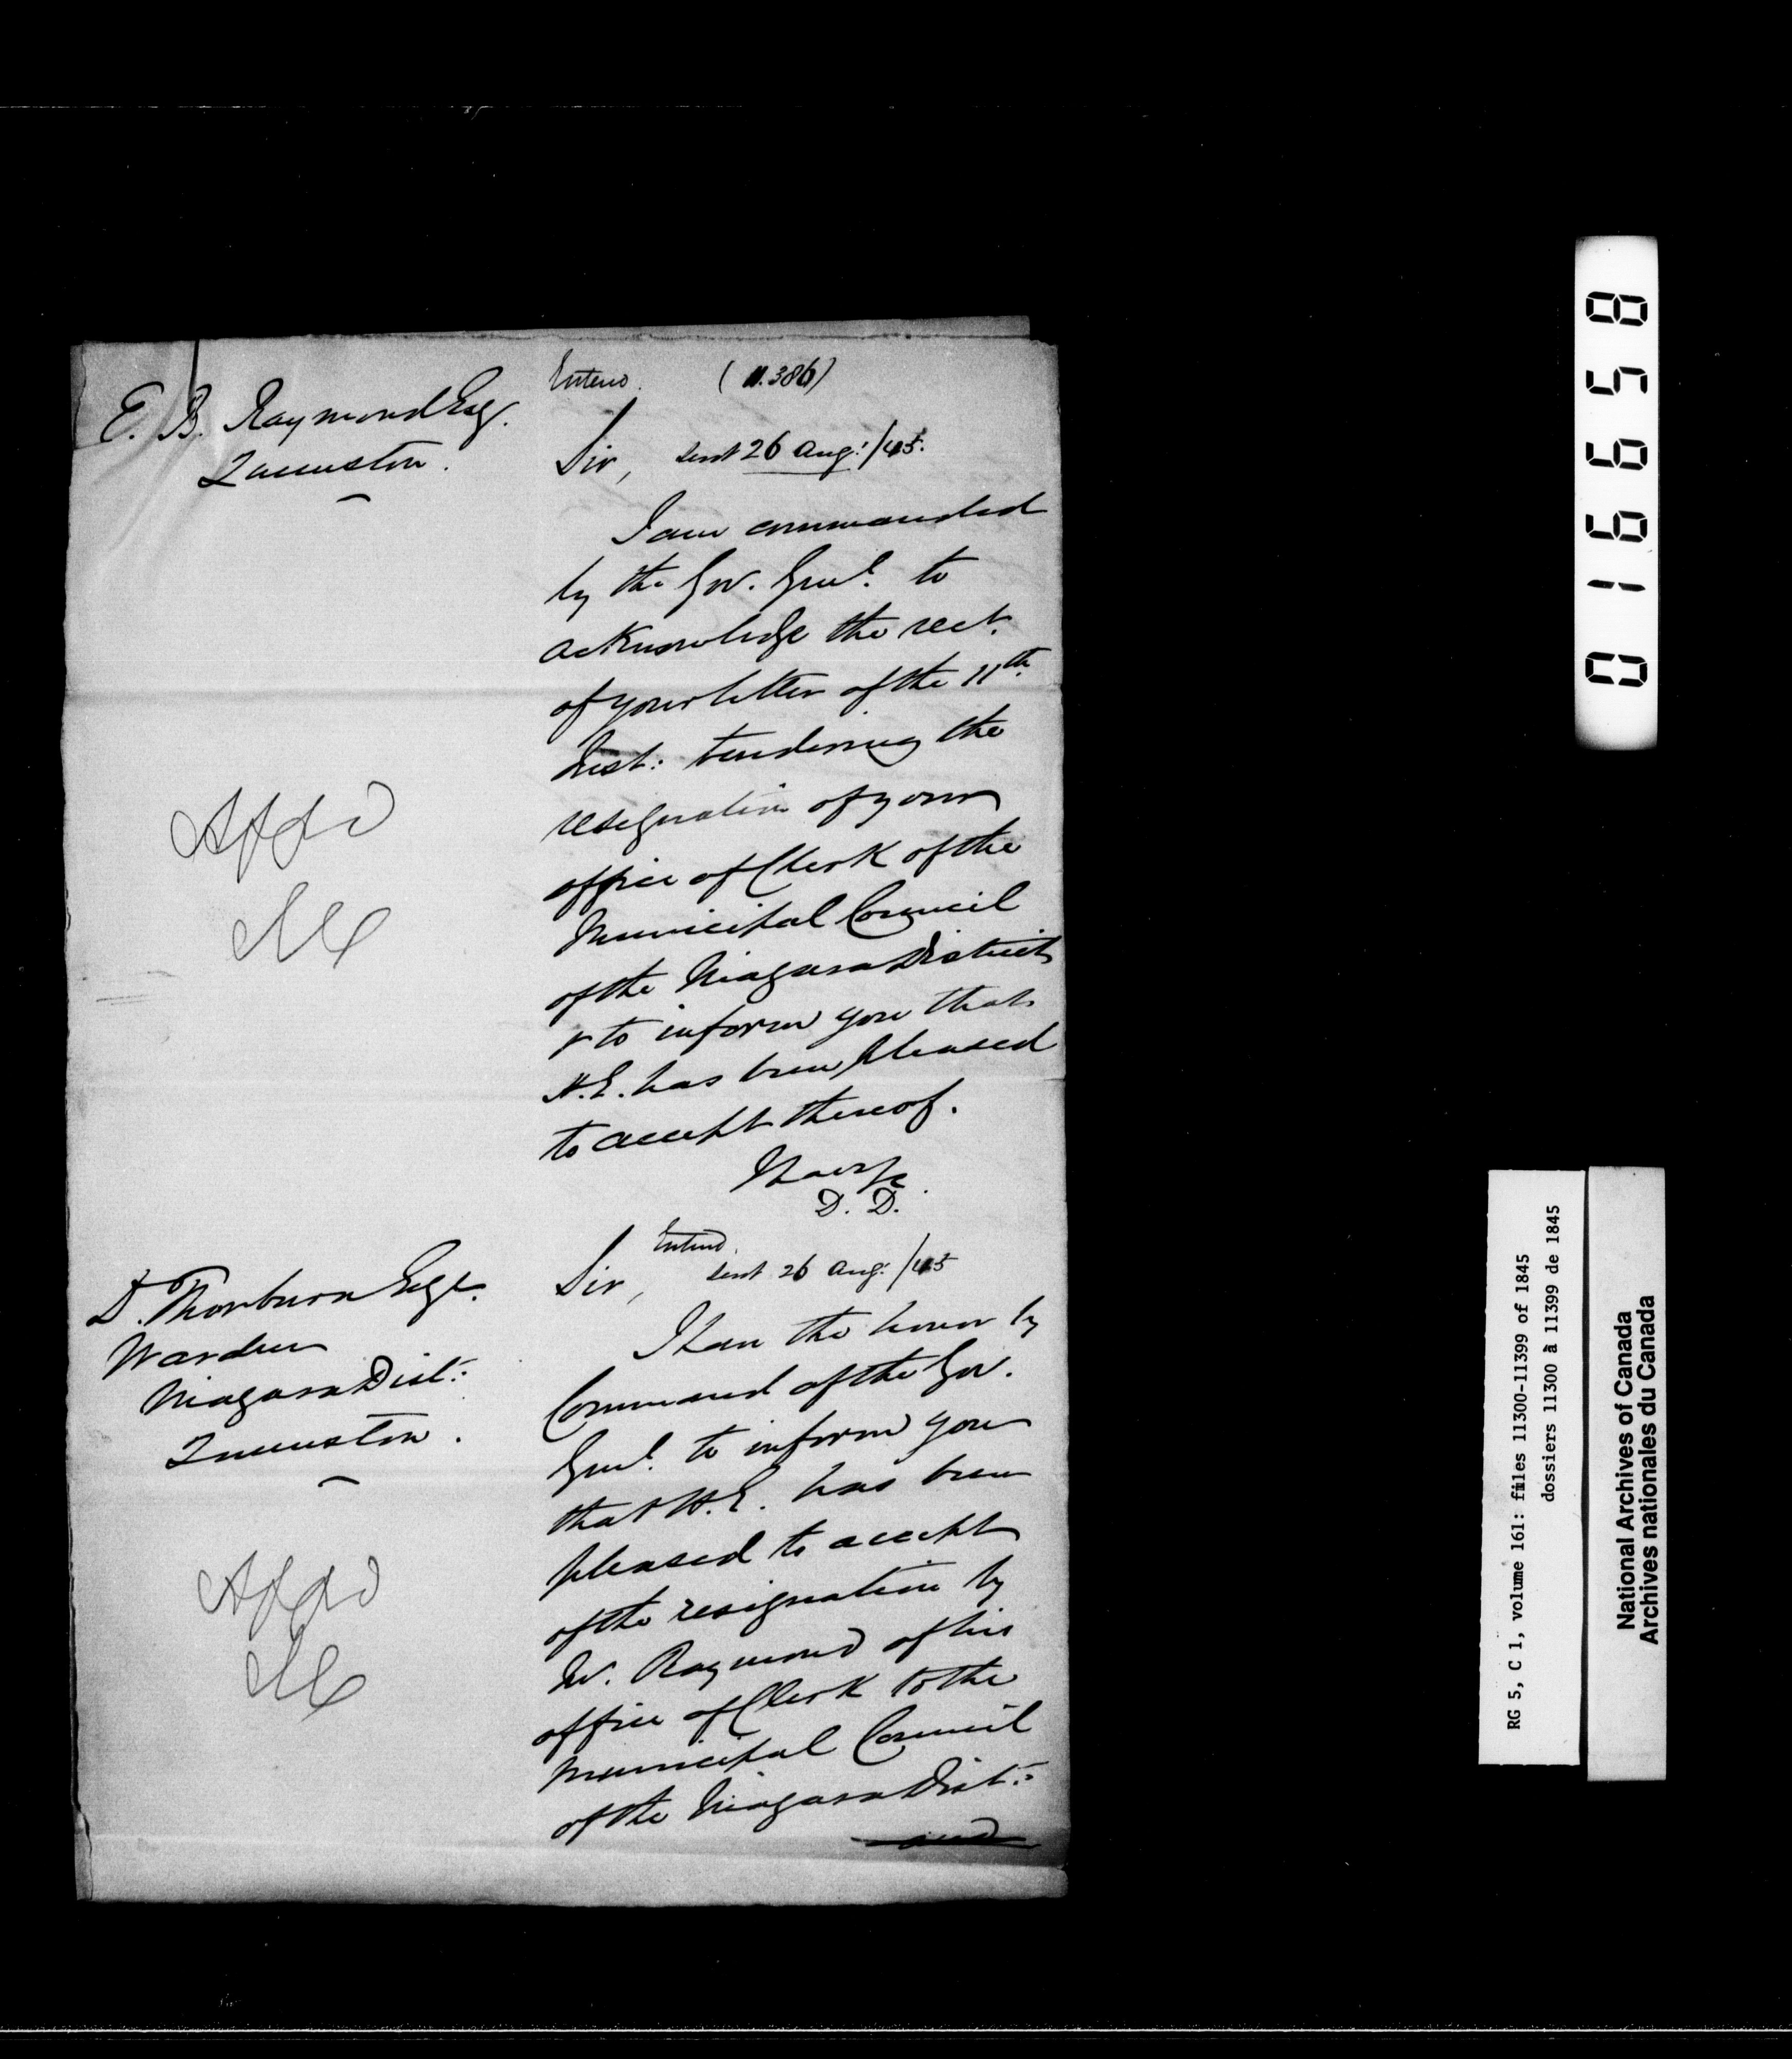 Enterd. (11.386)
E. B. Raymond Esq.
Queenston.
Sir, sent 26 Aug: /45.
I am commanded
by the Gov. Genl. to
acknowledge the rect.
of your letter of the 11th.
Inst: tendering the
resignation of your
office of Clerk of the
Municipal Council
of the Niagara District
& to inform you that
H.E. has been pleased
to accept thereof.
D. D.
Appd
Enterd.
D. Thorburn Esqr.
Warden
Niagara Dist:
Queenston.
Sir, sent 26 Aug: /45
I have the honor by
Command of the Gov.
Genl. to inform you
that H.E. has been
pleased to accept
of the resignation by
Mr. Raymond of his
office of Clerk to the
Municipal Council
of the Niagara Dist:
and
Appd
016658
RG 5, C 1, volume 161: files 11300-11399 of 1845
dossiers 11300 à 11399 de 1845
National Archives of Canada
Archives nationales du Canada